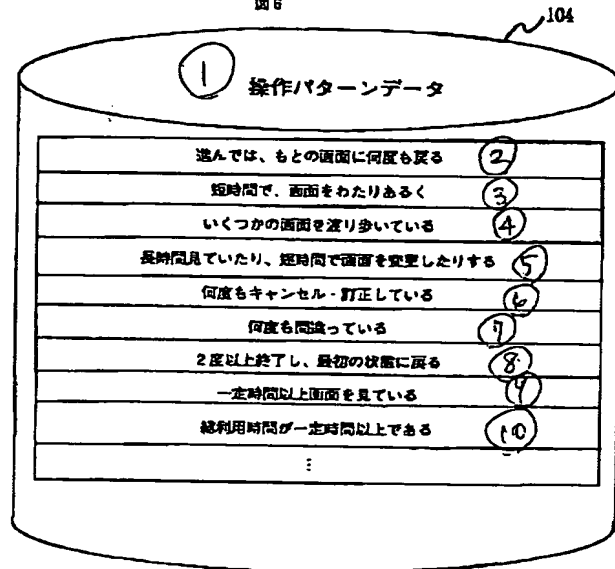 図6
104
① 操作パターンデータ
進んでは、もとの画面に何度も戻る ②
短時間で、画面をわたりあるく ③
いくつかの画面を渡り歩いている ④
長時間見ていたり、短時間で画面を変更したりする ⑤
何度もキャンセル・訂正している ⑥
何度も間違っている ⑦
2度以上終了し、最初の状態に戻る ⑧
一定時間以上画面を見ている ⑨
総利用時間が一定時間以上である ⑩
⋮